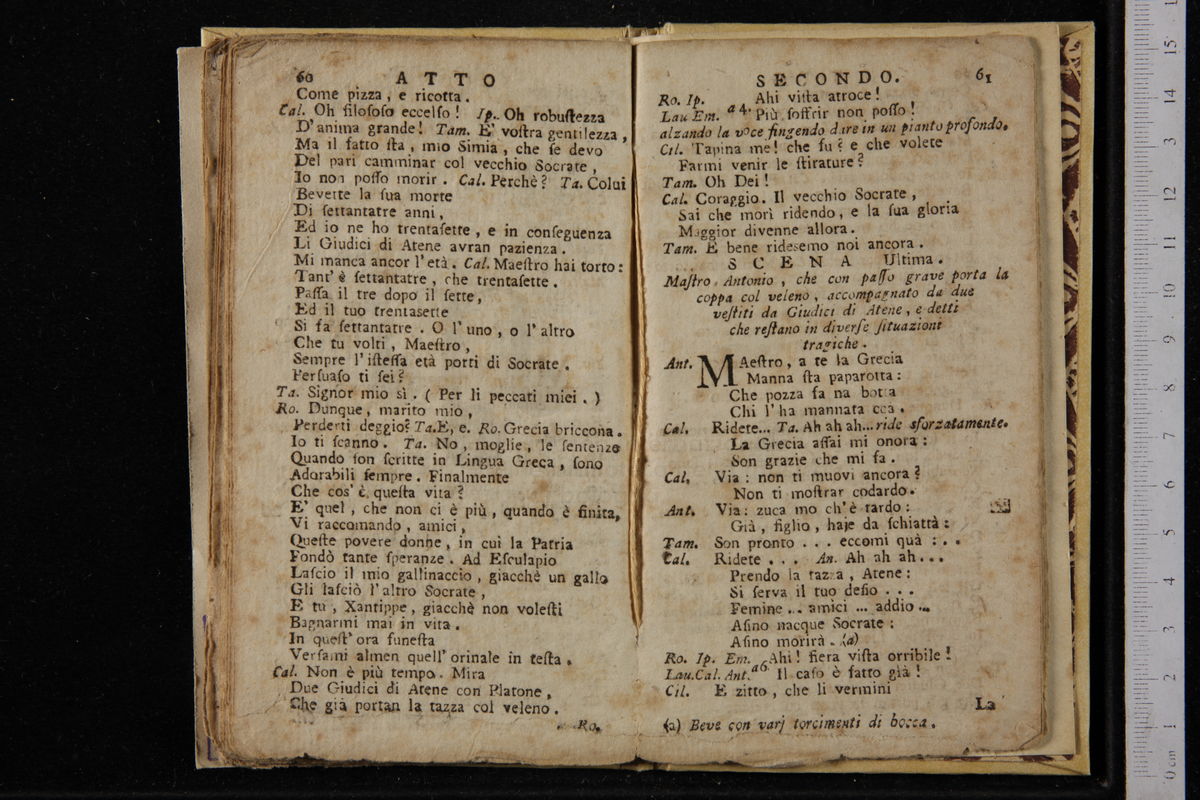 60 ATTO
Come pizza, e ricotta.
Cal. Oh filosofo eccelso! Ip. Oh robustezza
D'anima grande! Tam. E' vostra gentilezza,
Ma il fatto sta, mio Simia, che se devo
Del pari camminar col vecchio Socrate,
Io non posso morir. Cal. Perchè? Ta. Colui
Bevette la sua morte
Di settantatre anni,
Ed io ne ho trentasette, e in conseguenza
Li Giudici di Atene avran pazienza.
Mi manca ancor l'età. Cal. Maestro hai torto:
Tant' è settantatre, che trentasette.
Passa il tre dopo il sette,
Ed il tuo trentasette
Si fa settantatre. O l'uno, o l'altro
Che tu volti, Maestro,
Sempre l'istessa età porti di Socrate.
Persuaso ti sei?
Ta. Signor mio sì. (Per li peccati miei.)
Ro. Dunque, marito mio,
Perderti deggio? Ta. E, e. Ro. Grecia briccona.
Io ti scanno. Ta. No, moglie, le sentenze
Quando son scritte in Lingua Greca, sono
Adorabili sempre. Finalmente
Che cos' è questa vita?
E' quel, che non ci è più, quando è finita,
Vi raccomando, amici,
Queste povere donne, in cui la Patria
Fondò tante speranze. Ad Esculapio
Lascio il mio gallinaccio, giacchè un gallo
Gli lasciò l'altro Socrate,
E tu, Xantippe, giacchè non volesti
Bagnarmi mai in vita.
In quest' ora funesta
Versami almen quell' orinale in testa.
Cal. Non è più tempo. Mira
Due Giudici di Atene con Platone,
Che già portan la tazza col veleno.
Ro.
SECONDO. 61
Ro. Ip. Ahi vista atroce!
Lau Em. a 4. Più soffrir non posso!
alzando la voce fingendo dare in un pianto profondo.
Cil. Tapina me! che fu? e che volete
Farmi venir le stirature?
Tam. Oh Dei!
Cal. Coraggio. Il vecchio Socrate,
Sai che morì ridendo, e la sua gloria
Maggior divenne allora.
Tam. E bene ridesemo noi ancora.
SCENA Ultima.
Mastro Antonio, che con passo grave porta la
coppa col veleno, accompagnato da due
vestiti da Giudici di Atene, e detti
che restano in diverse situazioni
tragiche.
Ant. MAestro, a te la Grecia
Manna sta paparotta:
Che pozza fa na botta
Chi l'ha mannata cca.
Cal. Ridete... Ta. Ah ah ah... ride sforzatamente.
La Grecia assai mi onora:
Son grazie che mi fa.
Cal. Via: non ti muovi ancora?
Non ti mostrar codardo.
Ant. Via: zuca mo ch'è tardo:
Già, figlio, haje da schiattà:
Tam. Son pronto... eccomi quà:..
Cal. Ridete... An. Ah ah ah...
Prendo la tazza, Atene:
Si serva il tuo desio...
Femine... amici... addio...
Asino nacque Socrate:
Asino morirà. (a)
Ro. Ip. Em. Ahi! fiera vista orribile!
Lau. Cal. Ant. a6 Il caso è fatto già!
Cil. E zitto, che li vermini
La
(a) Beve con varj torcimenti di bocca.